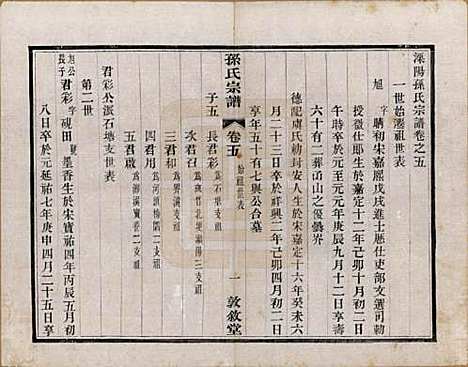 溧陽孫氏宗譜卷之五
一世始遷祖世表
旭 字曉初宋嘉熙戊戌進士歷仕吏部文選司勅
授徵仕郎生於嘉定十二年己卯十月初二日
午時卒於元至元年庚辰九月十二日享壽
六十有二葬凾山之優曇界
德配虞氏勅封安人生於宋嘉定十六年癸未六
月二十三日卒於祥興二年己卯四月初二日
享年五十有七與公合墓
子五 長君彩 爲石塘支祖
孫氏宗譜 卷五 始祖世表 一 敦敘堂
次君召
三君和 爲界溝支祖
四君用
五君啟
君彩公派石塘支世表
第二世
旭公長子 君彩 字硯田 號星香生於宋寶祐四年丙辰五月初
八日卒於元延祐七年庚申四月二十五日享